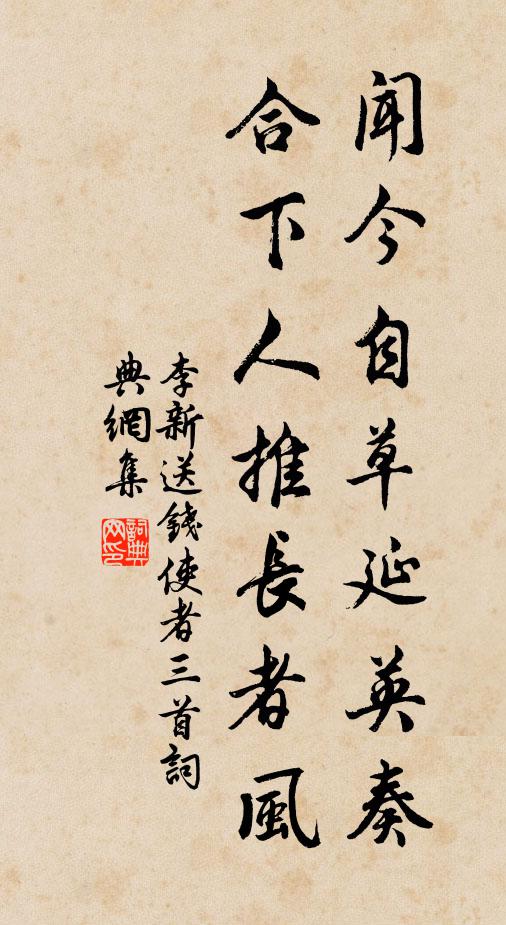 闻今自草延英奏
合下人推長者風
李新送錢使者三首詞
典網集
詞典网印